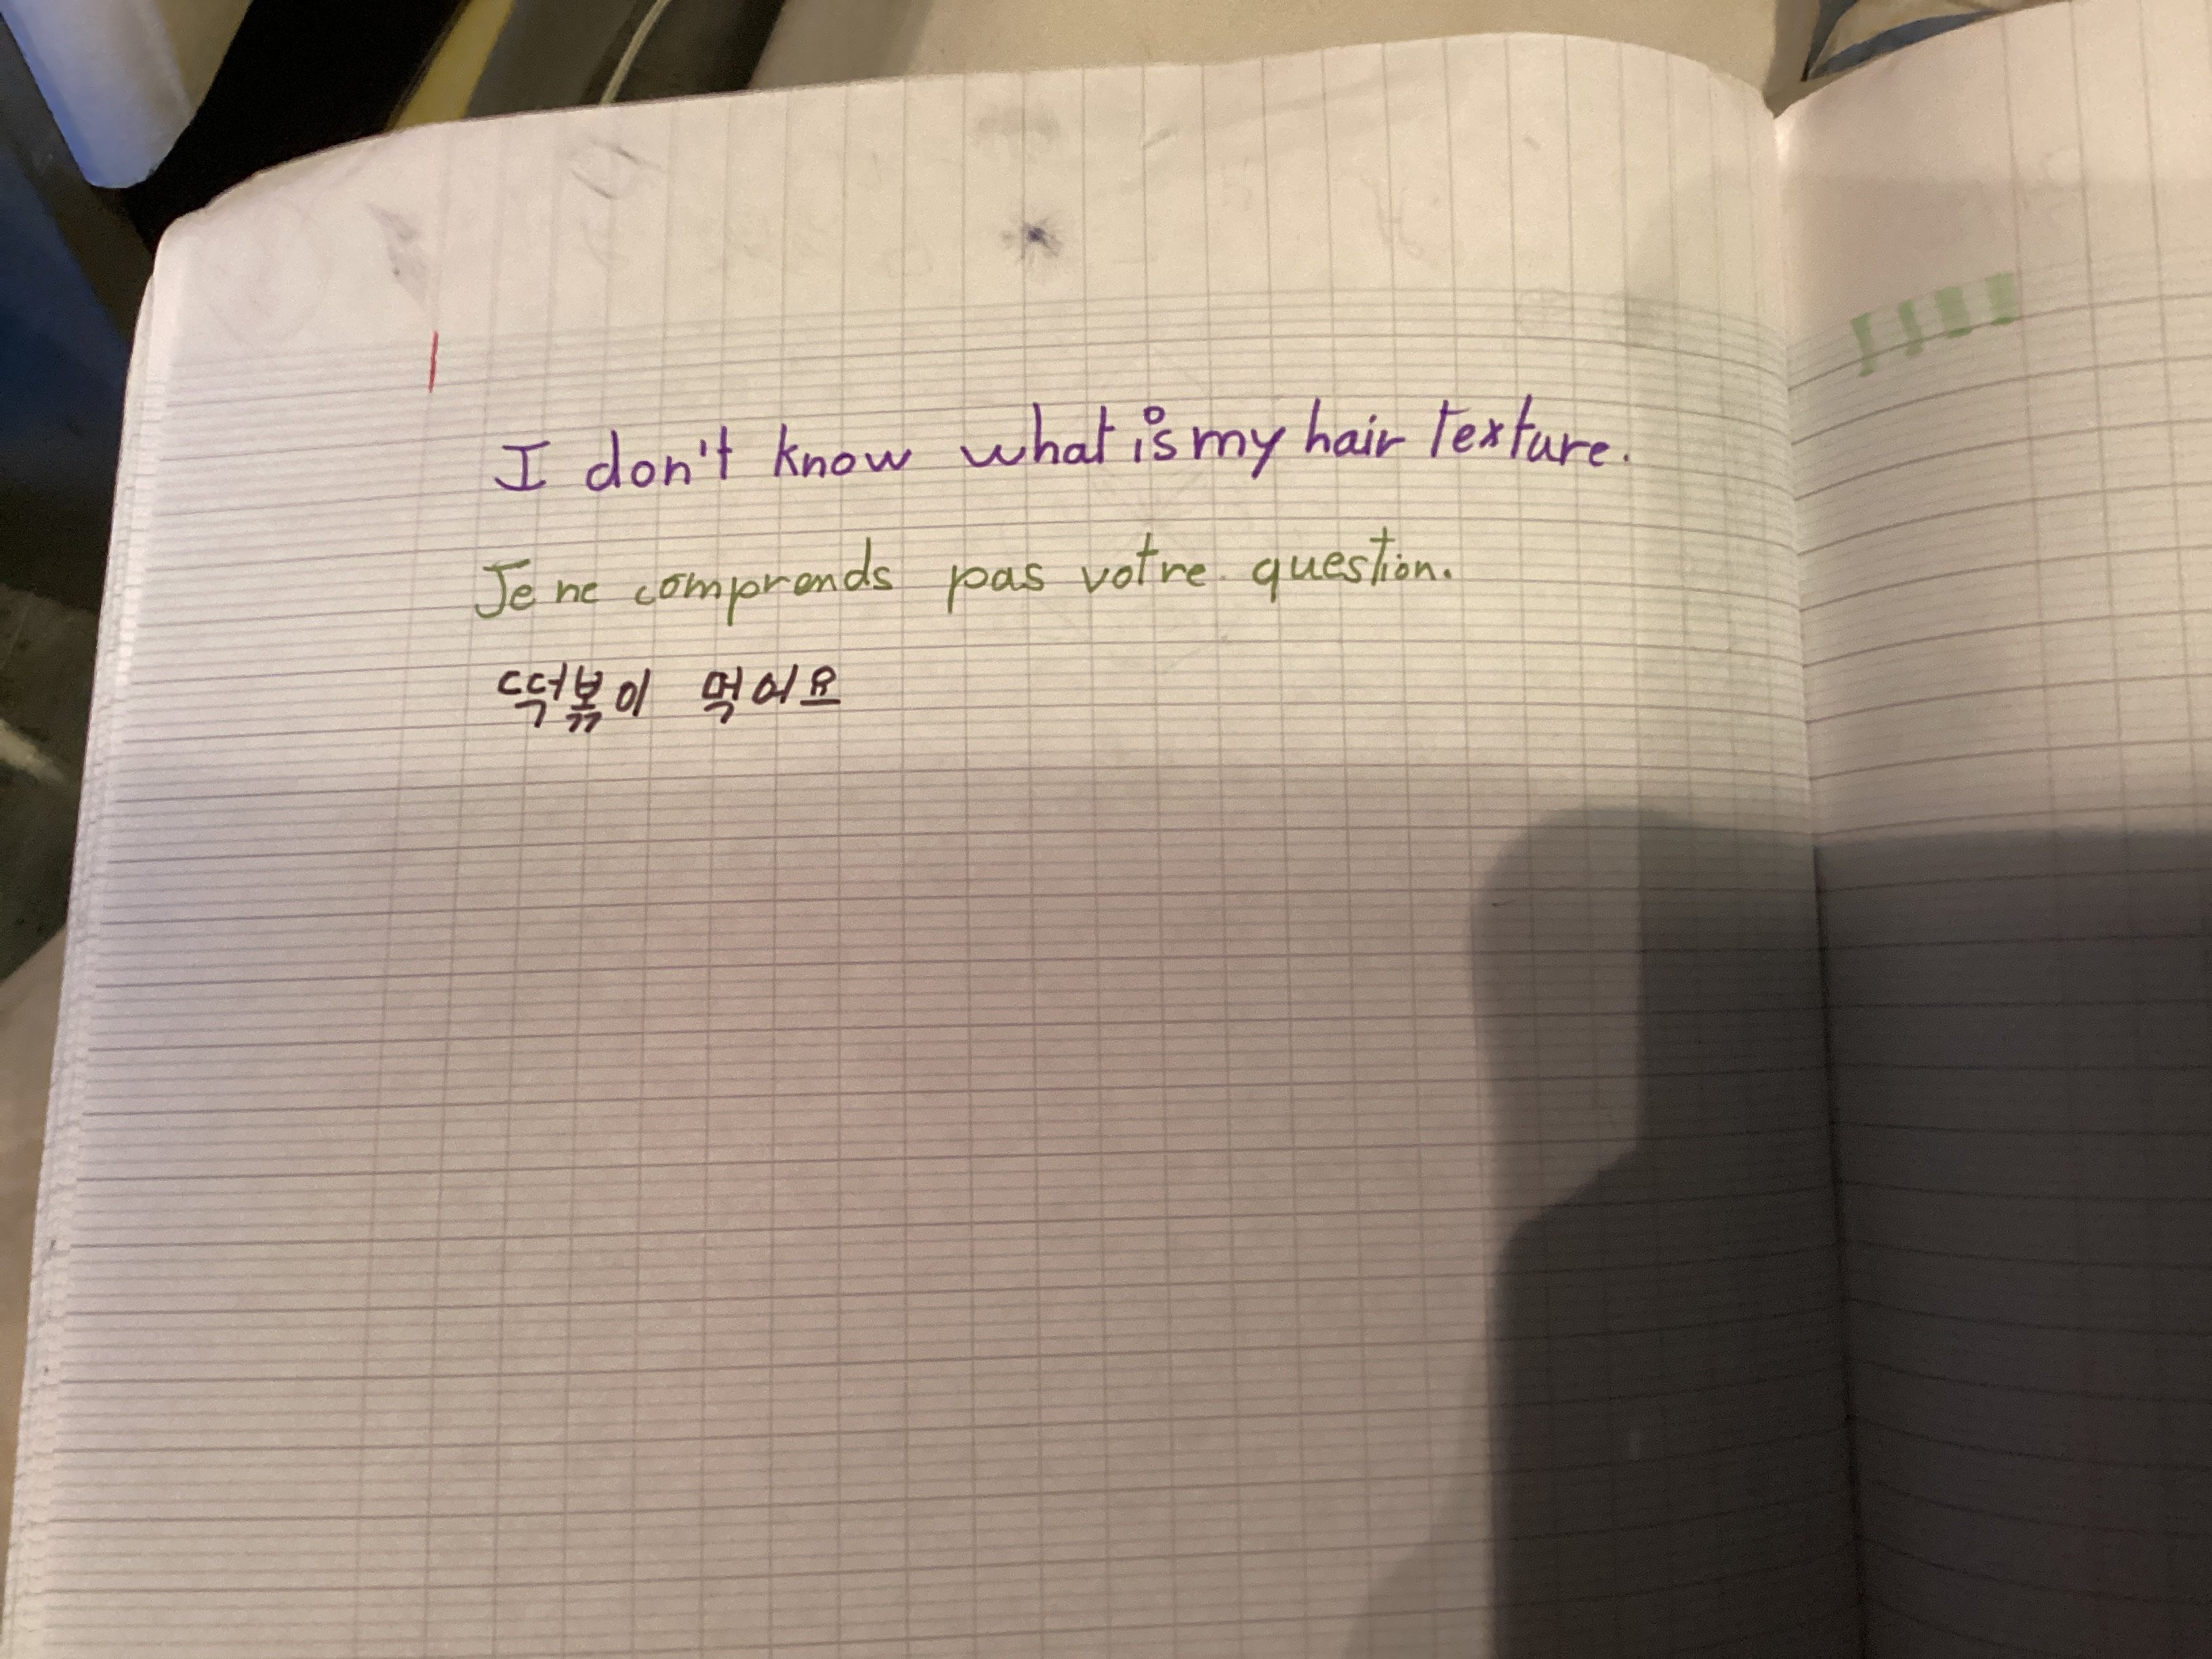 I don't know what is my hair texture.
Je ne comprends pas votre question.
떡볶이 먹어요